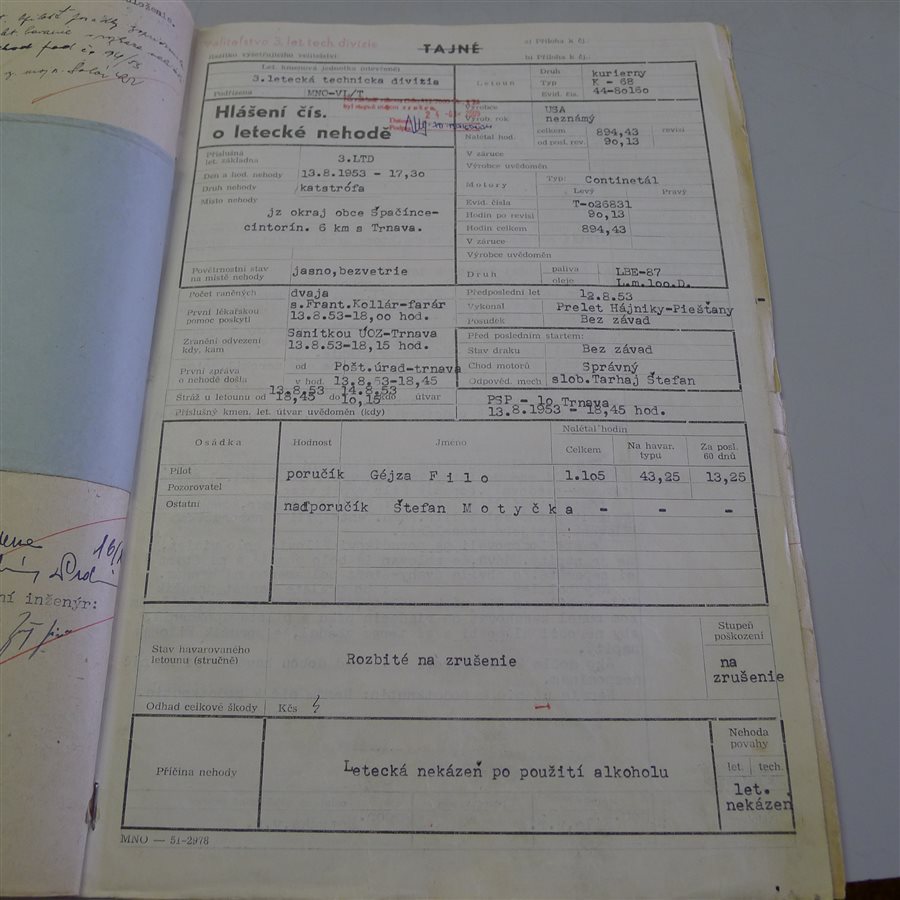 uloženie.
velitelstvo 3. let.tech.divizie
TAJNÉ
a) Příloha k čj.
b) Příloha k čj.:
Let. kmenová jednotka (otevřeně)
3.letecká technicka divizia
Podřízena MNO-VI/T
Letoun
Druh kurierny
Typ K - 68
Evid. čís. 44-80160
Hlášení čís.
o letecké nehodě
Výrobce USA
Výrob. rok neznámý
Nalétal hod. celkem 894,43 revisí
od posl. rev. 90,13
Příslušná
let. základna 3.LTD
Den a hod. nehody 13.8.1953 - 17,30
Druh nehody katstrófa
Místo nehody
jz okraj obce Špačínce-
cintorín. 6 km s Trnava.
Povětrnostní stav
na místě nehody jasno,bezvetrie
V záruce
Výrobce uvědoměn
Motory Typ: Continetál
Levý Pravý
Evid. čísla T-o26831
Hodin po revisi 90,13
Hodin celkem 894,43
V záruce
Výrobce uvědoměn
Druh paliva LBE-87
oleje L.m.100.D.
Počet raněných dvaja
První lékařskou s.Frant.Kollár-farár
pomoc poskytl 13.8.53-18,00 hod.
Zranění odvezeni Sanitkou ÚOZ-Trnava
kdy, kam 13.8.53-18,15 hod.
První zpráva od Pošt.úrad-trnava
o nehodě došla v hod. 13.8.53-18,45
13.8.53 14.8.53
Stráž u letounu od 18,45 do 10,15 kdo útvar
Příslušný kmen. let. útvar uvědoměn (kdy)
Předposlední let 12.8.53
Vykonal Prelet Hájniky-Piešťany
Posudek Bez závad
Před posledním startem:
Stav draku Bez závad
Chod motorů Správný
Odpověd. mech slob.Tarhaj Štefan
PSP - 10 Trnava
13.8.1953 - 18,45 hod.
Osádka Hodnost Jméno Nalétal hodin
Celkem Na havar. typu Za posl. 60 dnů
Pilot poručík Géjza Filo 1.105 43,25 13,25
Pozorovatel
Ostatní nadporučík Štefan Motyčka - - -
Stav havarovaného
letounu (stručně) Rozbité na zrušenie
Stupeň
poškození
na
zrušenie
Odhad celkové škody Kčs
Příčina nehody Letecká nekázeň po použití alkoholu
Nehoda
povahy
let. tech.
let.
nekázeň
MNO — 51-2978
ní inženýr: